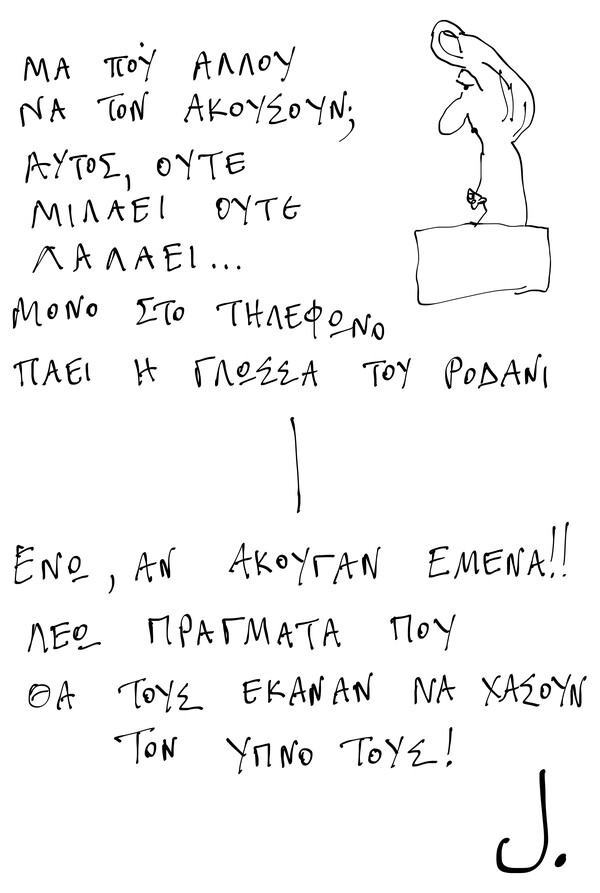 ΜΑ ΠΟΎ ΑΛΛΟΥ
ΝΑ ΤΟΝ ΑΚΟΥΣΟΥΝ;
ΑΥΤΟΣ, ΟΥΤΕ
ΜΙΛΑΕΙ ΟΥΤΕ
ΛΑΛΑΕΙ...
ΜΟΝΟ ΣΤΟ ΤΗΛΕΦΩΝΟ
ΠΑΕΙ Η ΓΛΩΣΣΑ ΤΟΥ ΡΟΔΑΝΙ
ΕΝΩ, ΑΝ ΑΚΟΥΓΑΝ ΕΜΕΝΑ!!
ΛΕΩ ΠΡΑΓΜΑΤΑ ΠΟΥ
ΘΑ ΤΟΥΣ ΕΚΑΝΑΝ ΝΑ ΧΑΣΟΥΝ
ΤΟΝ ΥΠΝΟ ΤΟΥΣ!
J.